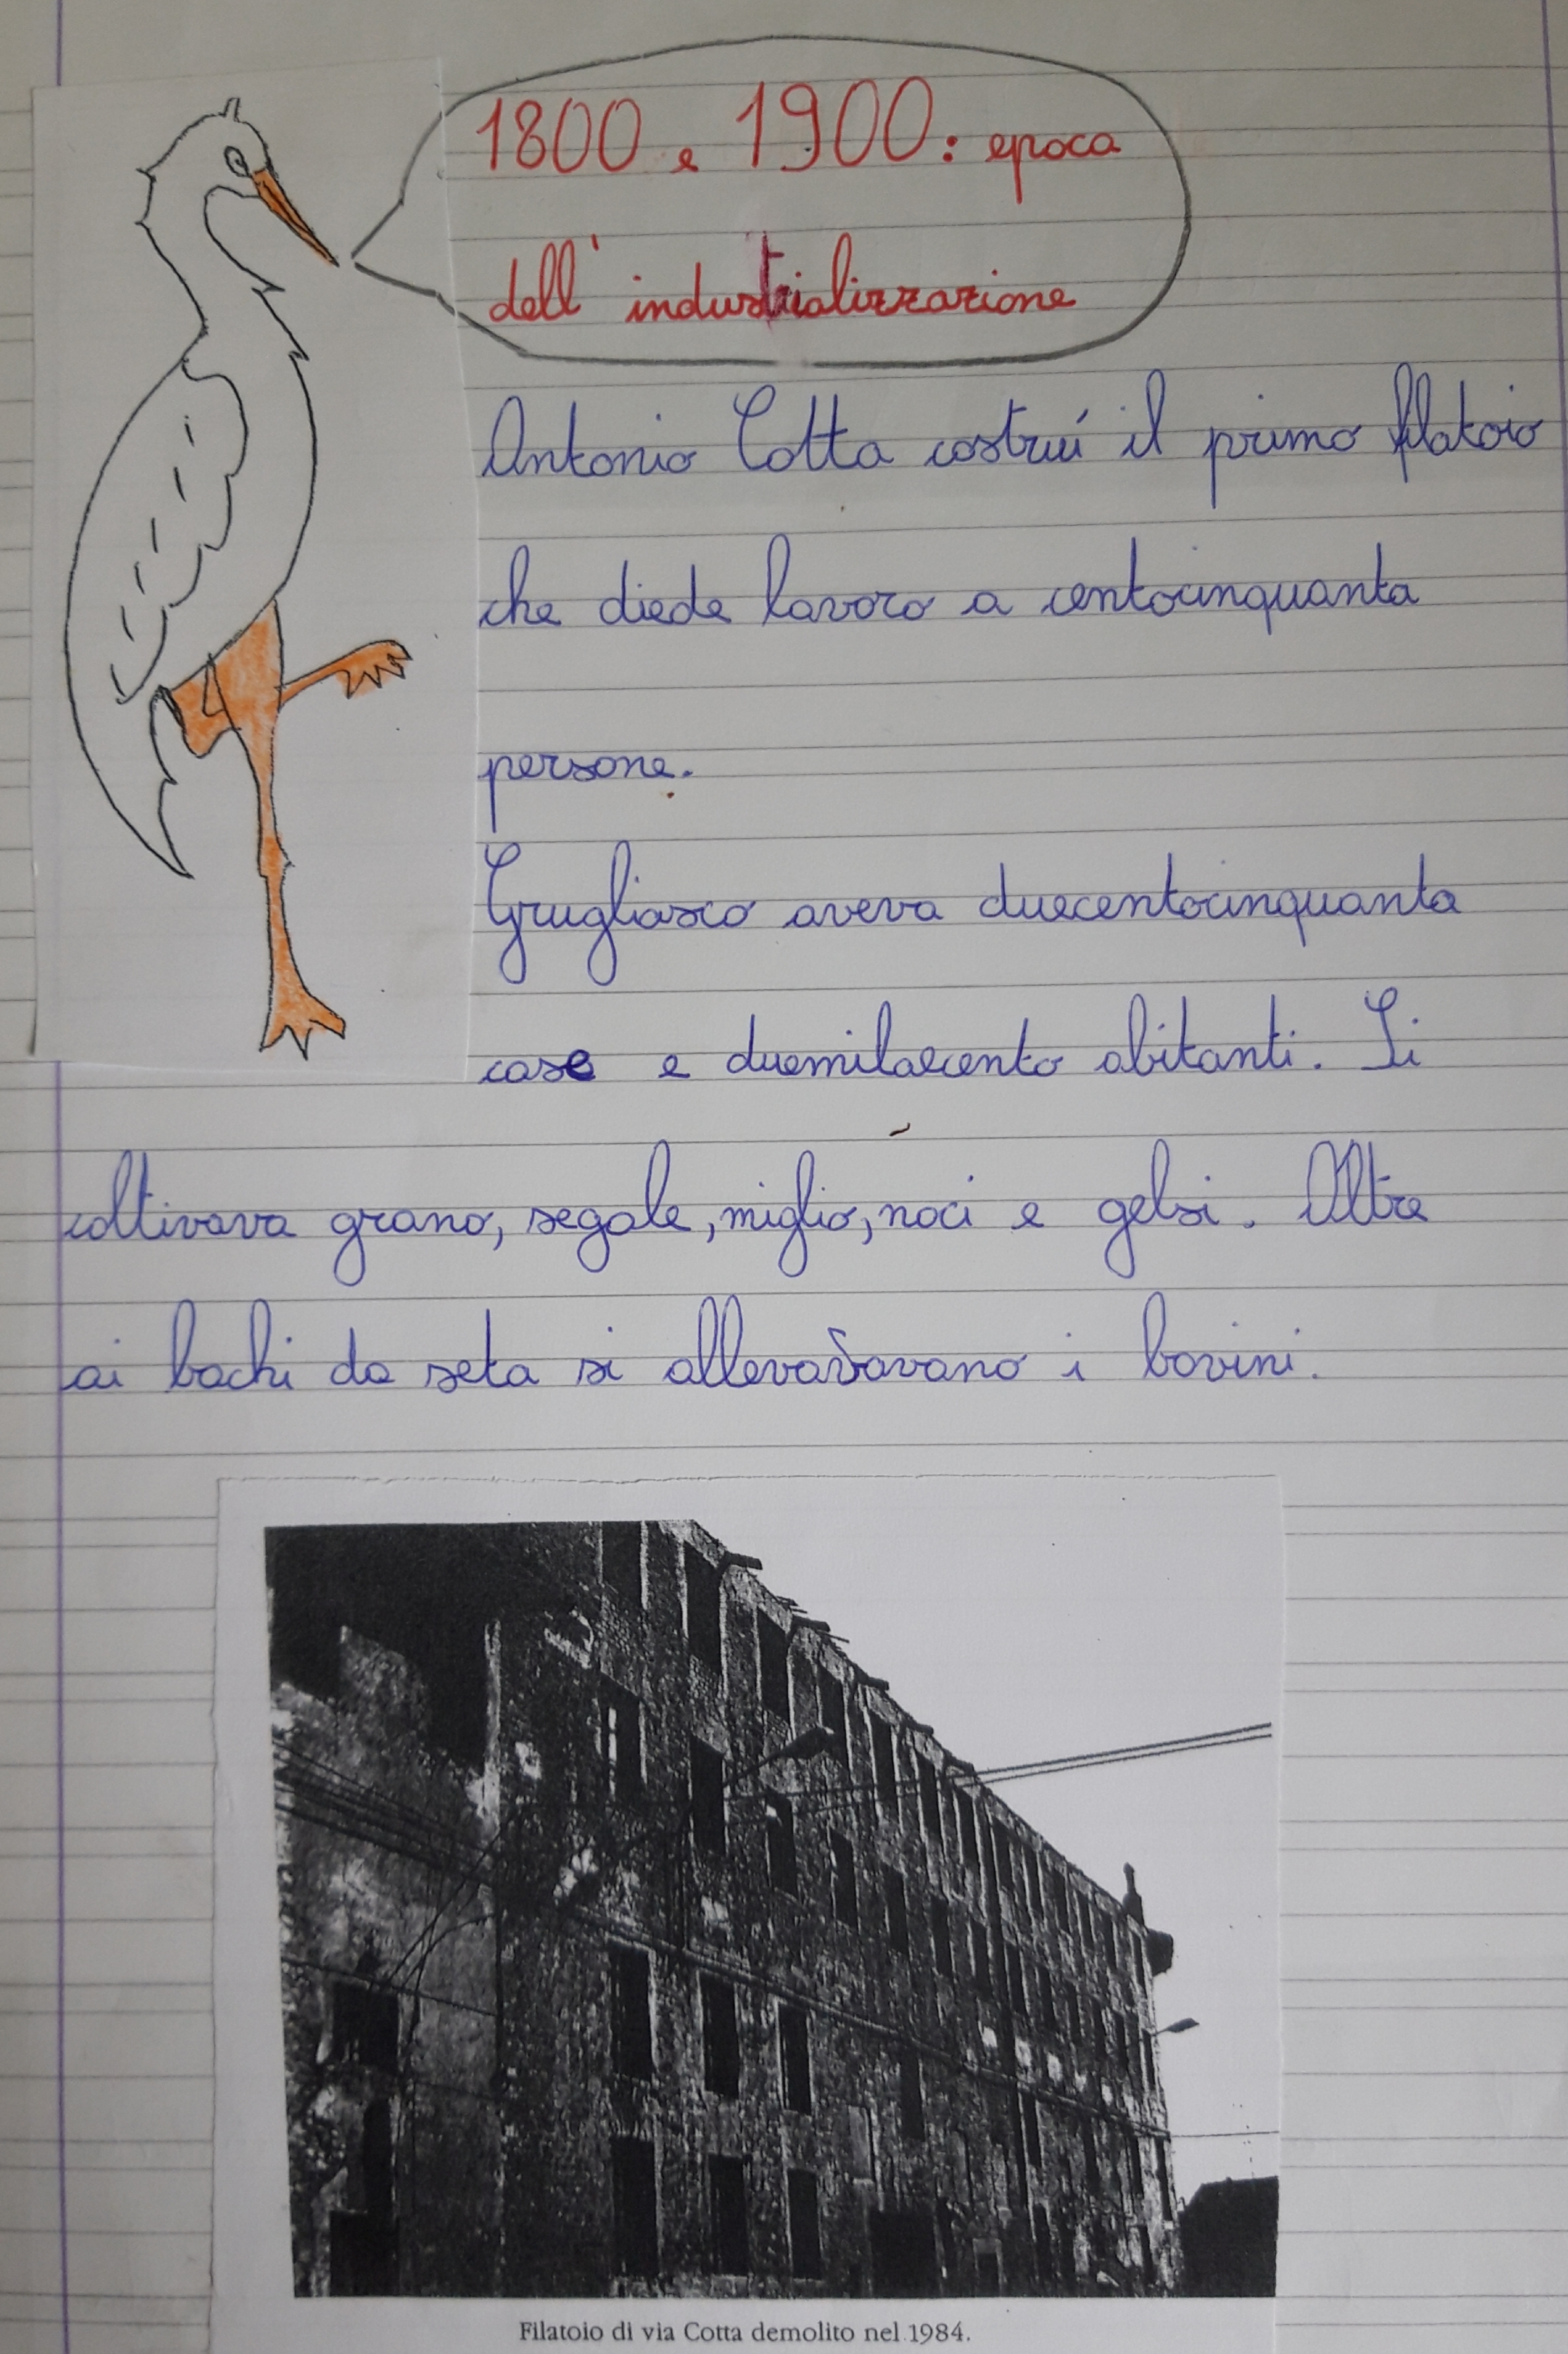 1800 e 1900: epoca
dell'industrializzazione
Antonio Cotta costruí il primo filatoio
che diede lavoro a centocinquanta
persone.
Grugliasco aveva duecentocinquanta
case e duemilacento abitanti. Si
coltivava grano, segale, miglio, noci e gelsi. Oltre
ai bachi da seta si allevavavano i bovini.
Filatoio di via Cotta demolito nel 1984.